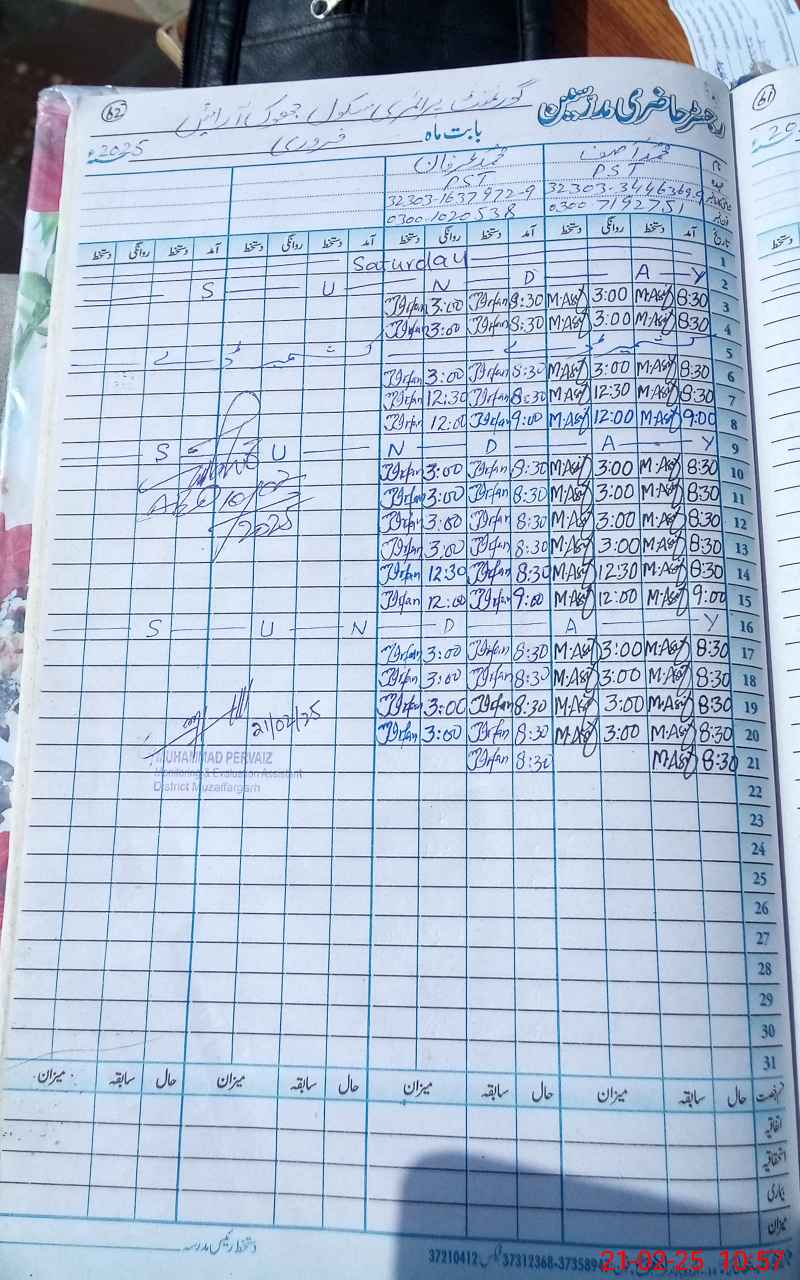 62
رجسٹر حاضری مدرسین گورنمنٹ پرائمری سکول جھوک آرائیں
بابت ماہ فروری 2025ء
نام محمد آصف محمد عرفان
PST PST
32303-1637972-9
0300-7192751 0300-1020538
تاریخ آمد دستخط روانگی دستخط آمد دستخط روانگی دستخط آمد دستخط روانگی دستخط آمد دستخط روانگی دستخط
Saturday 1
S U N D A Y 2
Irfan 3:00 Irfan 8:30 M.Asif 3:00 M.Asif 8:30 3
Irfan 3:00 Irfan 8:30 M.Asif 3:00 M.Asif 8:30 4
کشمیر ڈے کشمیر ڈے 5
Irfan 3:00 Irfan 8:30 M.Asif 3:00 M.Asif 8:30 6
Irfan 12:30 Irfan 8:30 M.Asif 12:30 M.Asif 8:30 7
Irfan 12:00 Irfan 9:00 M.Asif 12:00 M.Asif 9:00 8
S U N D A Y 9
Irfan 3:00 Irfan 8:30 M.Asif 3:00 M.Asif 8:30 10
Irfan 3:00 Irfan 8:30 M.Asif 3:00 M.Asif 8:30 11
Irfan 3:00 Irfan 8:30 M.Asif 3:00 M.Asif 8:30 12
Irfan 3:00 Irfan 8:30 M.Asif 3:00 M.Asif 8:30 13
Irfan 12:30 Irfan 8:30 M.Asif 12:30 M.Asif 8:30 14
Irfan 12:00 Irfan 9:00 M.Asif 12:00 M.Asif 9:00 15
S U N D A Y 16
Irfan 3:00 Irfan 8:30 M.Asif 3:00 M.Asif 8:30 17
Irfan 3:00 Irfan 8:30 M.Asif 3:00 M.Asif 8:30 18
Irfan 3:00 Irfan 8:30 M.Asif 3:00 M.Asif 8:30 19
Irfan 3:00 Irfan 8:30 M.Asif 3:00 M.Asif 8:30 20
Irfan 8:30 M.Asif 8:30 21
10/02
2025
21/02/25
MUHAMMAD PERVAIZ
Monitoring & Evaluation Assistant
District Muzaffargarh
22
23
24
25
26
27
28
29
30
31
حال سابقہ میزان حال سابقہ میزان حال سابقہ میزان حال سابقہ میزان
اتفاقیہ
استحقاقیہ
بیماری
میزان
دستخط رئیس مدرسہ
37210412 37312368-37358
21-02-25 10:57
61